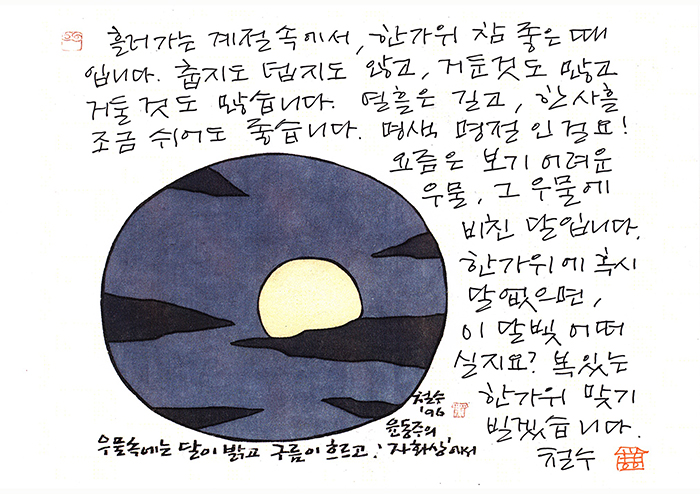 흘러가는 계절속에서, 한가위 참 좋은 때
입니다. 춥지도 덥지도 않고, 거둔것도 많고
거둘 것도 많습니다. 열흘은 길고, 한 사흘
조금 쉬어도 좋습니다. 명색 명절인걸요!
요즘은 보기 어려운
우물, 그 우물에
비친 달입니다.
한가위에 혹시
달 없으면,
이 달빛 어떠
실지요? 복있는
한가위 맞기
빌겠습니다.
철수
철수
'96
우물속에는 달이 밝고 구름이 흐르고: 윤동주의
'자화상'에서